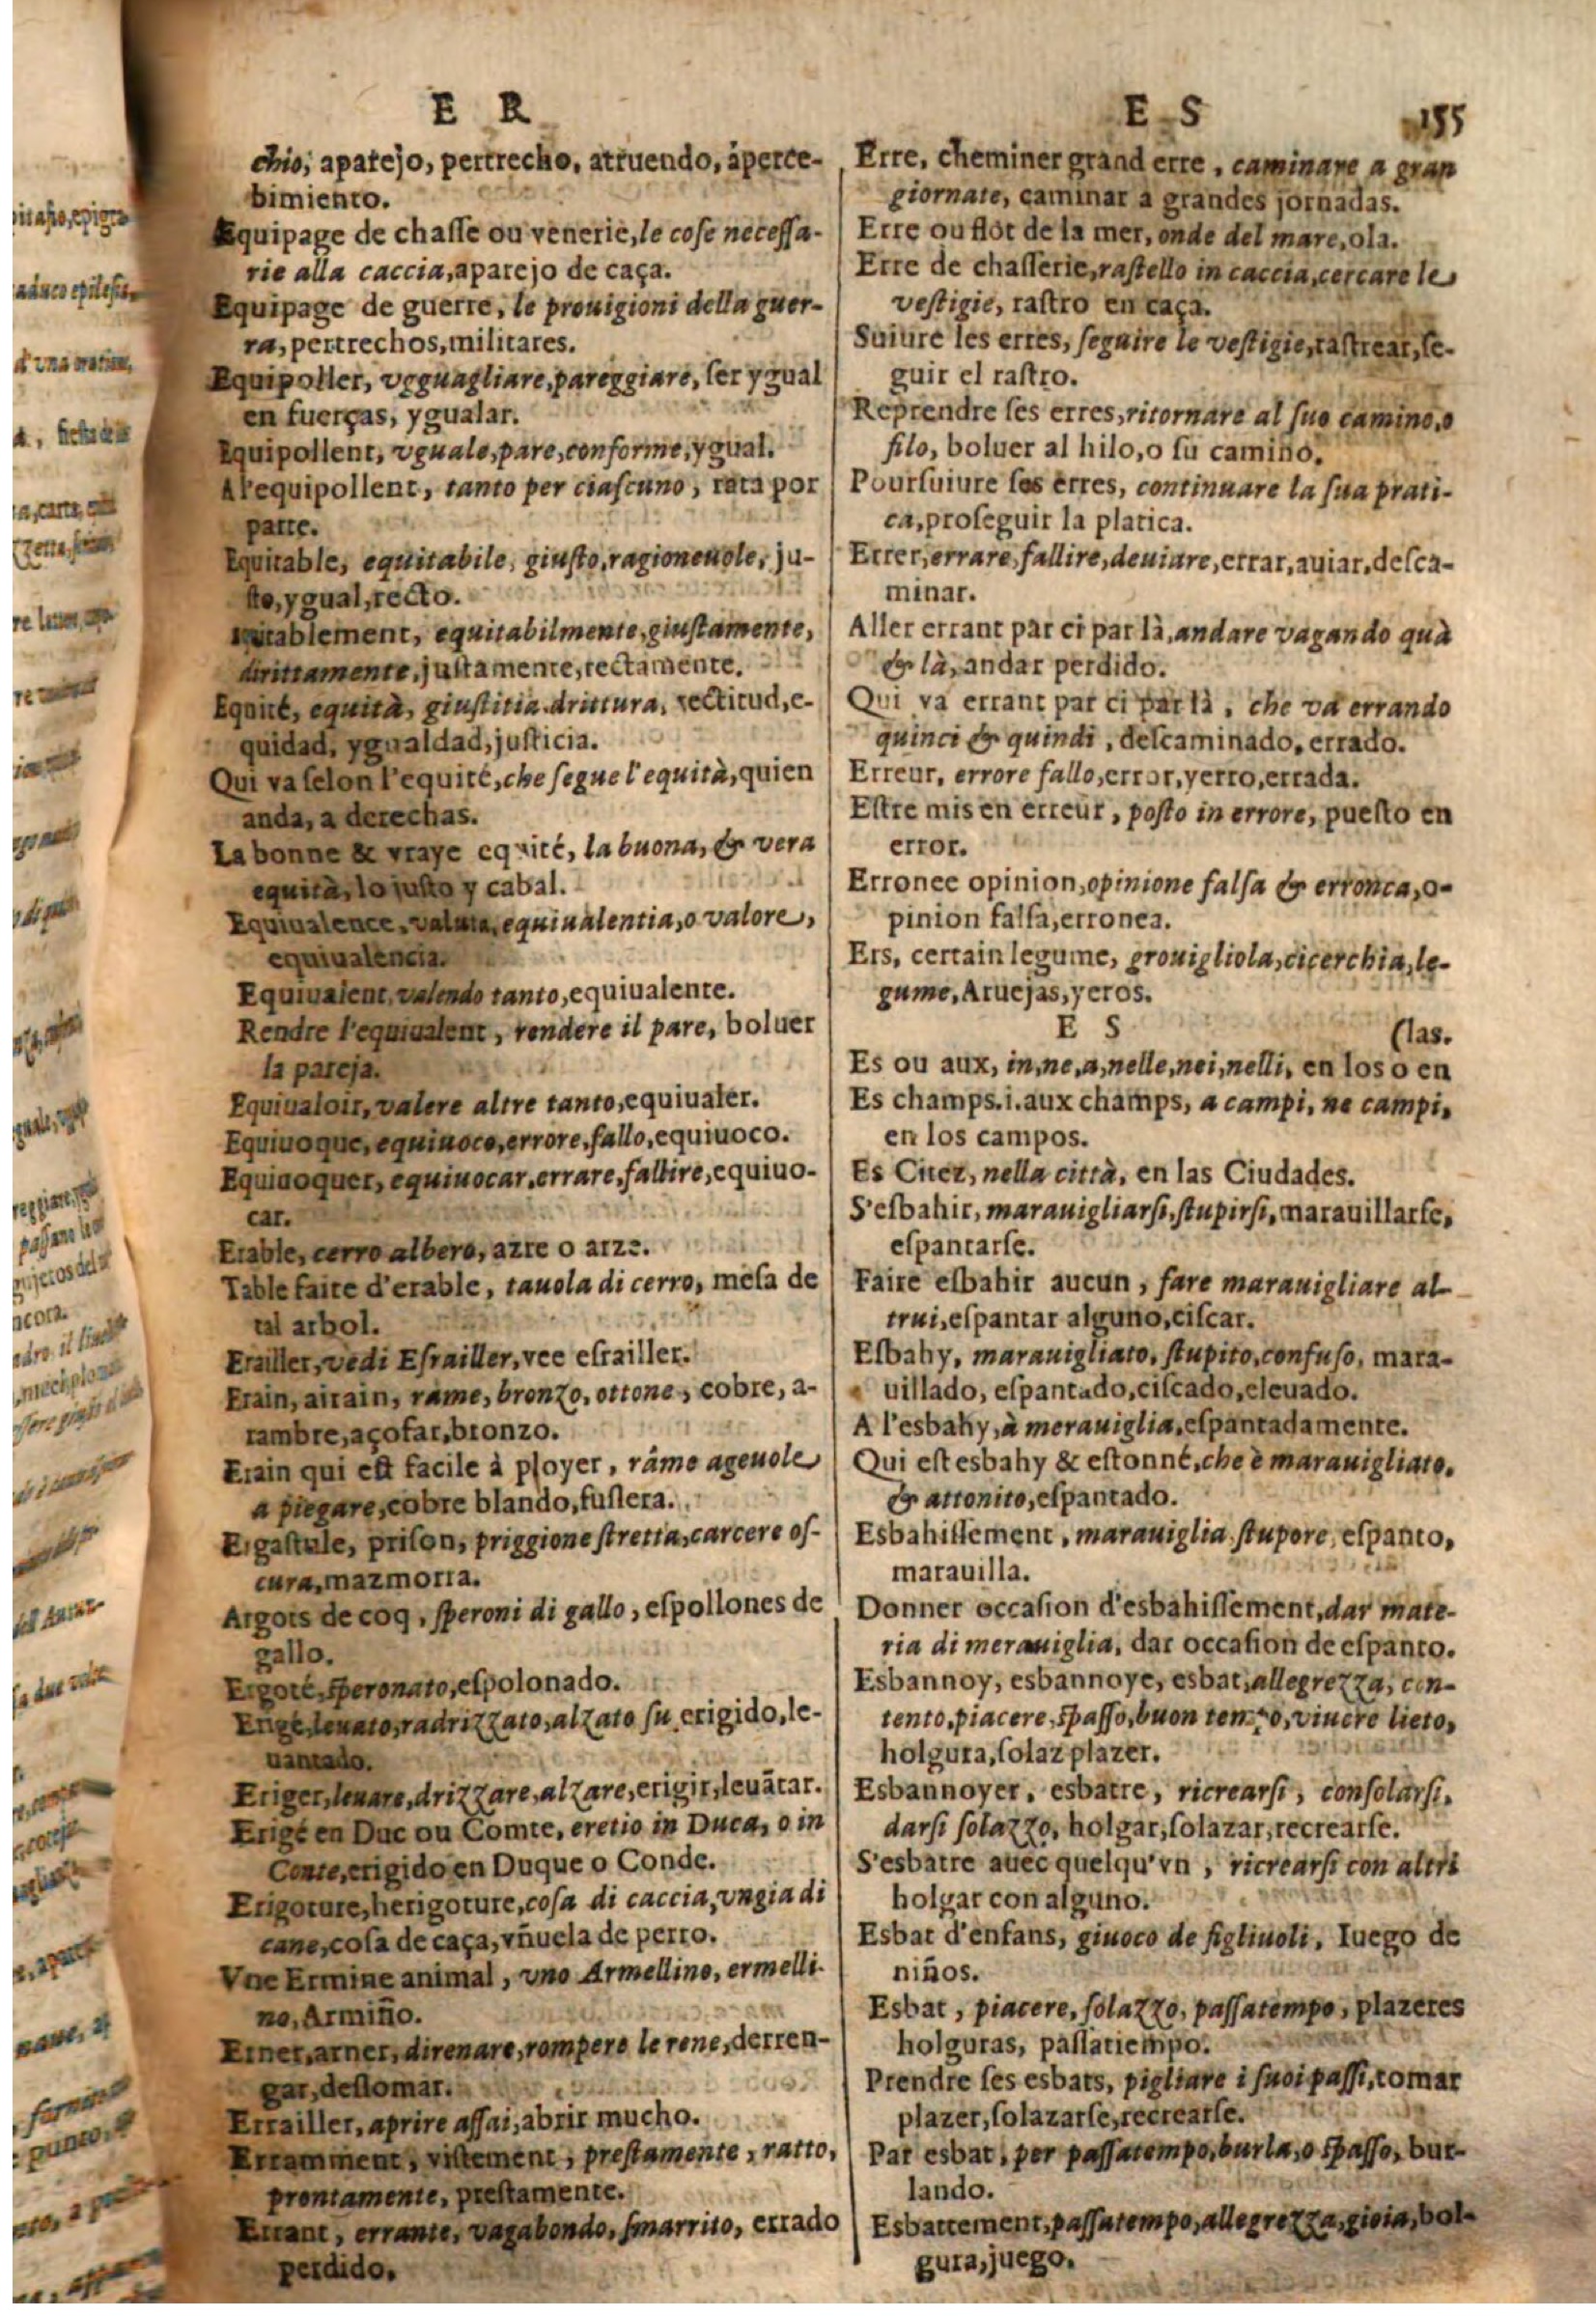 E R
chio, aparejo, pertrecho, atruendo, aperce-
bimiento.
Equipage de chasse ou venerie, le cose necessa-
rie alla caccia, aparejo de caça.
Equipage de guerre, le prouigioni della guer-
ra, pertrechos, militares.
Equipoller, vgguagliare, pareggiare, ser ygual
en fuerças, ygualar.
Equipollent, vguale, pare, conforme, ygual.
A l'equipollent, tanto per ciascuno, rata por
parte.
Equitable, equitabile, giusto, ragioneuole, ju-
sto, ygual, recto.
equitabilmente, giustamente,
dirittamente, justamente, rectamente.
Equité, equità, giustitia. drittura, rectitud, e-
quidad, ygualdad, justicia.
Qui va selon l'equité, che segue l'equità, quien
anda, a derechas.
La bonne & vraye equité, la buona, & vera
equità, lo justo y cabal.
Equiualence, valuta, equiualentia, o valore,
equiualencia.
Equiualent, valendo tanto, equiualente.
Rendre l'equiualent, rendere il pare, boluer
la pareja.
Equiualoir, valere altre tanto, equiualer.
Equiuoque, equiuoco, errore, fallo, equiuoco.
Equiuoquer, equiuocar, errare, fallire, equiuo-
car.
Erable, cerro albero, azre o arze.
Table faite d'erable, tauola di cerro, mesa de
tal arbol.
Erailler, vedi Esrailler, vee esrailler.
Erain, airain, rame, bronzo, ottone, cobre, a-
rambre, açofar, bronzo.
Erain qui est facile à ployer, rame ageuole
a piegare, cobre blando, fuslera.
Ergastule, prison, priggione stretta, carcere os-
cura, mazmorra.
Argots de coq, speroni di gallo, espollones de
gallo.
Ergoté, speronato, espolonado.
Erigé, leuato, radrizzato, alzato su, erigido, le-
uantado.
Eriger, leuare, drizzare, alzare, erigir, leuãtar.
Erigé en Duc ou Comte, eretio in Duca, o in
Conte, erigido en Duque o Conde.
Erigoture, herigoture, cosa di caccia, vngia di
cane, cosa de caça, vñuela de perro.
Vne Ermine animal, vno Armellino, ermelli-
no, Armiño.
Erner, arner, direnare, rompere le rene, derren-
gar, deslomar.
Errailler, aprire assai, abrir mucho.
Erramment, vistement, prestamente, ratto,
prontamente, prestamente.
Errant, errante, vagabondo, smarrito, errado
perdido.
E S 155
Erre, cheminer grand erre, caminare a gran
giornate, caminar a grandes jornadas.
Erre ou flot de la mer, onde del mare, ola.
Erre de chasserie, rastello in caccia, cercare le
vestigie, rastro en caça.
Suiure les erres, seguire le vestigie, rastrear, se-
guir el rastro.
Reprendre ses erres, ritornare al suo camino, o
filo, boluer al hilo, o su camino.
Poursuiure ses erres, continuare la sua prati-
ca, proseguir la platica.
Errer, errare, fallire, deuiare, errar, auiar, desca-
minar.
Aller errant par ci par là, andare vagando quà
& là, andar perdido.
Qui va errant par ci par là, che va errando
quinci & quindi, descaminado, errado.
Erreur, errore fallo, error, yerro, errada.
Estre mis en erreur, posto in errore, puesto en
error.
Erronee opinion, opinione falsa & erronca, o-
pinion falsa, erronea.
Ers, certain legume, grouigliola, cicerchia, le-
gume, Aruejas, yeros.
E S (las.
Es ou aux, in, ne, a, nelle, nei, nelli, en los o en
Es champs. i. aux champs, a campi, ne campi,
en los campos.
Es Citez, nella città, en las Ciudades.
S'esbahir, marauigliarsi, stupirsi, marauillarse,
espantarse.
Faire esbahir aucun, fare marauigliare al-
trui, espantar alguno, ciscar.
Esbahy, marauigliato, stupito, confuso, mara-
uillado, espantado, ciscado, eleuado.
A l'esbahy, à merauiglia, espantadamente.
Qui est esbahy & estonné, che è marauigliato,
& attonito, espantado.
Esbahissement, marauiglia. stupore, espanto,
marauilla.
Donner occasion d'esbahissement, dar mate-
ria di merauiglia, dar occasion de espanto.
Esbannoy, esbannoye, esbat, allegrezza, con-
tento, piacere, spasso, buon tempo, viuere lieto,
holgura, solaz plazer.
Esbannoyer, esbatre, ricrearsi, consolarsi,
darsi solazzo, holgar, solazar, recrearse.
S'esbatre auec quelqu'vn, ricrearsi con altri
holgar con alguno.
Esbat d'enfans, giuoco de figliuoli, Iuego de
niños.
Esbat, piacere, solazzo, passatempo, plazeres
holguras, passatiempo.
Prendre ses esbats, pigliare i suoi passi, tomar
plazer, solazarse, recrearse.
Par esbat, per passatempo, burla, o spasso, bur-
lando.
Esbattement, passatempo, allegrezza, gioia, bol-
gura, juego.